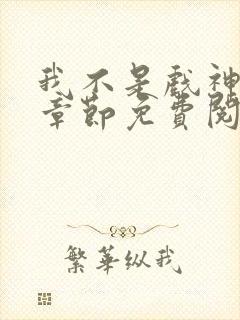 我不是戲神
章節免費閱
繁華纵我